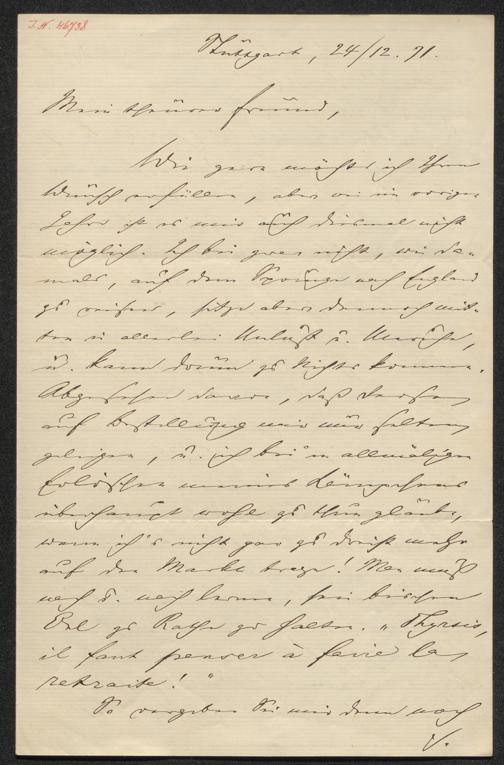 I.N. 46738
Stuttgart, 24/12. 71.
Mein theurer Freund,
Wie gern möchte ich Ihren
Wunsch erfüllen, aber wie im vorigen
Jahre ist es mir auch diesmal nicht
möglich. Ich bin zwar nicht, wie da-
mals, auf dem Sprunge nach England
zu reisen, sitze aber dennoch mit-
ten in allerlei Unlust u. Unruhe,
u. kann darum zu Nichts kommen.
Abgesehen davon, daß dersen
auf Bestellung mir nur selten
gelingen, u. ich bei'm allmäligen
Erlöschen meines Lämpchens
überhaupt wohl zu thun glaube,
wenn ich's nicht gar zu dreist mehr
auf den Markt trage! Man muß
nach u. nach lernen, sein bischen
Oel zu Rathe zu halten. „Thyrsis,
il faut penser à faire la
retraite!"
So vergeben Sie mir denn noch
V.